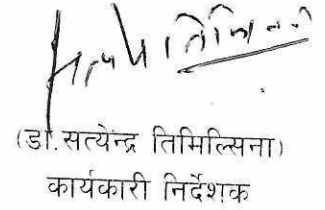 (डा. सत्येन्द्र तिमिल्सिना)
कार्यकारी निर्देशक